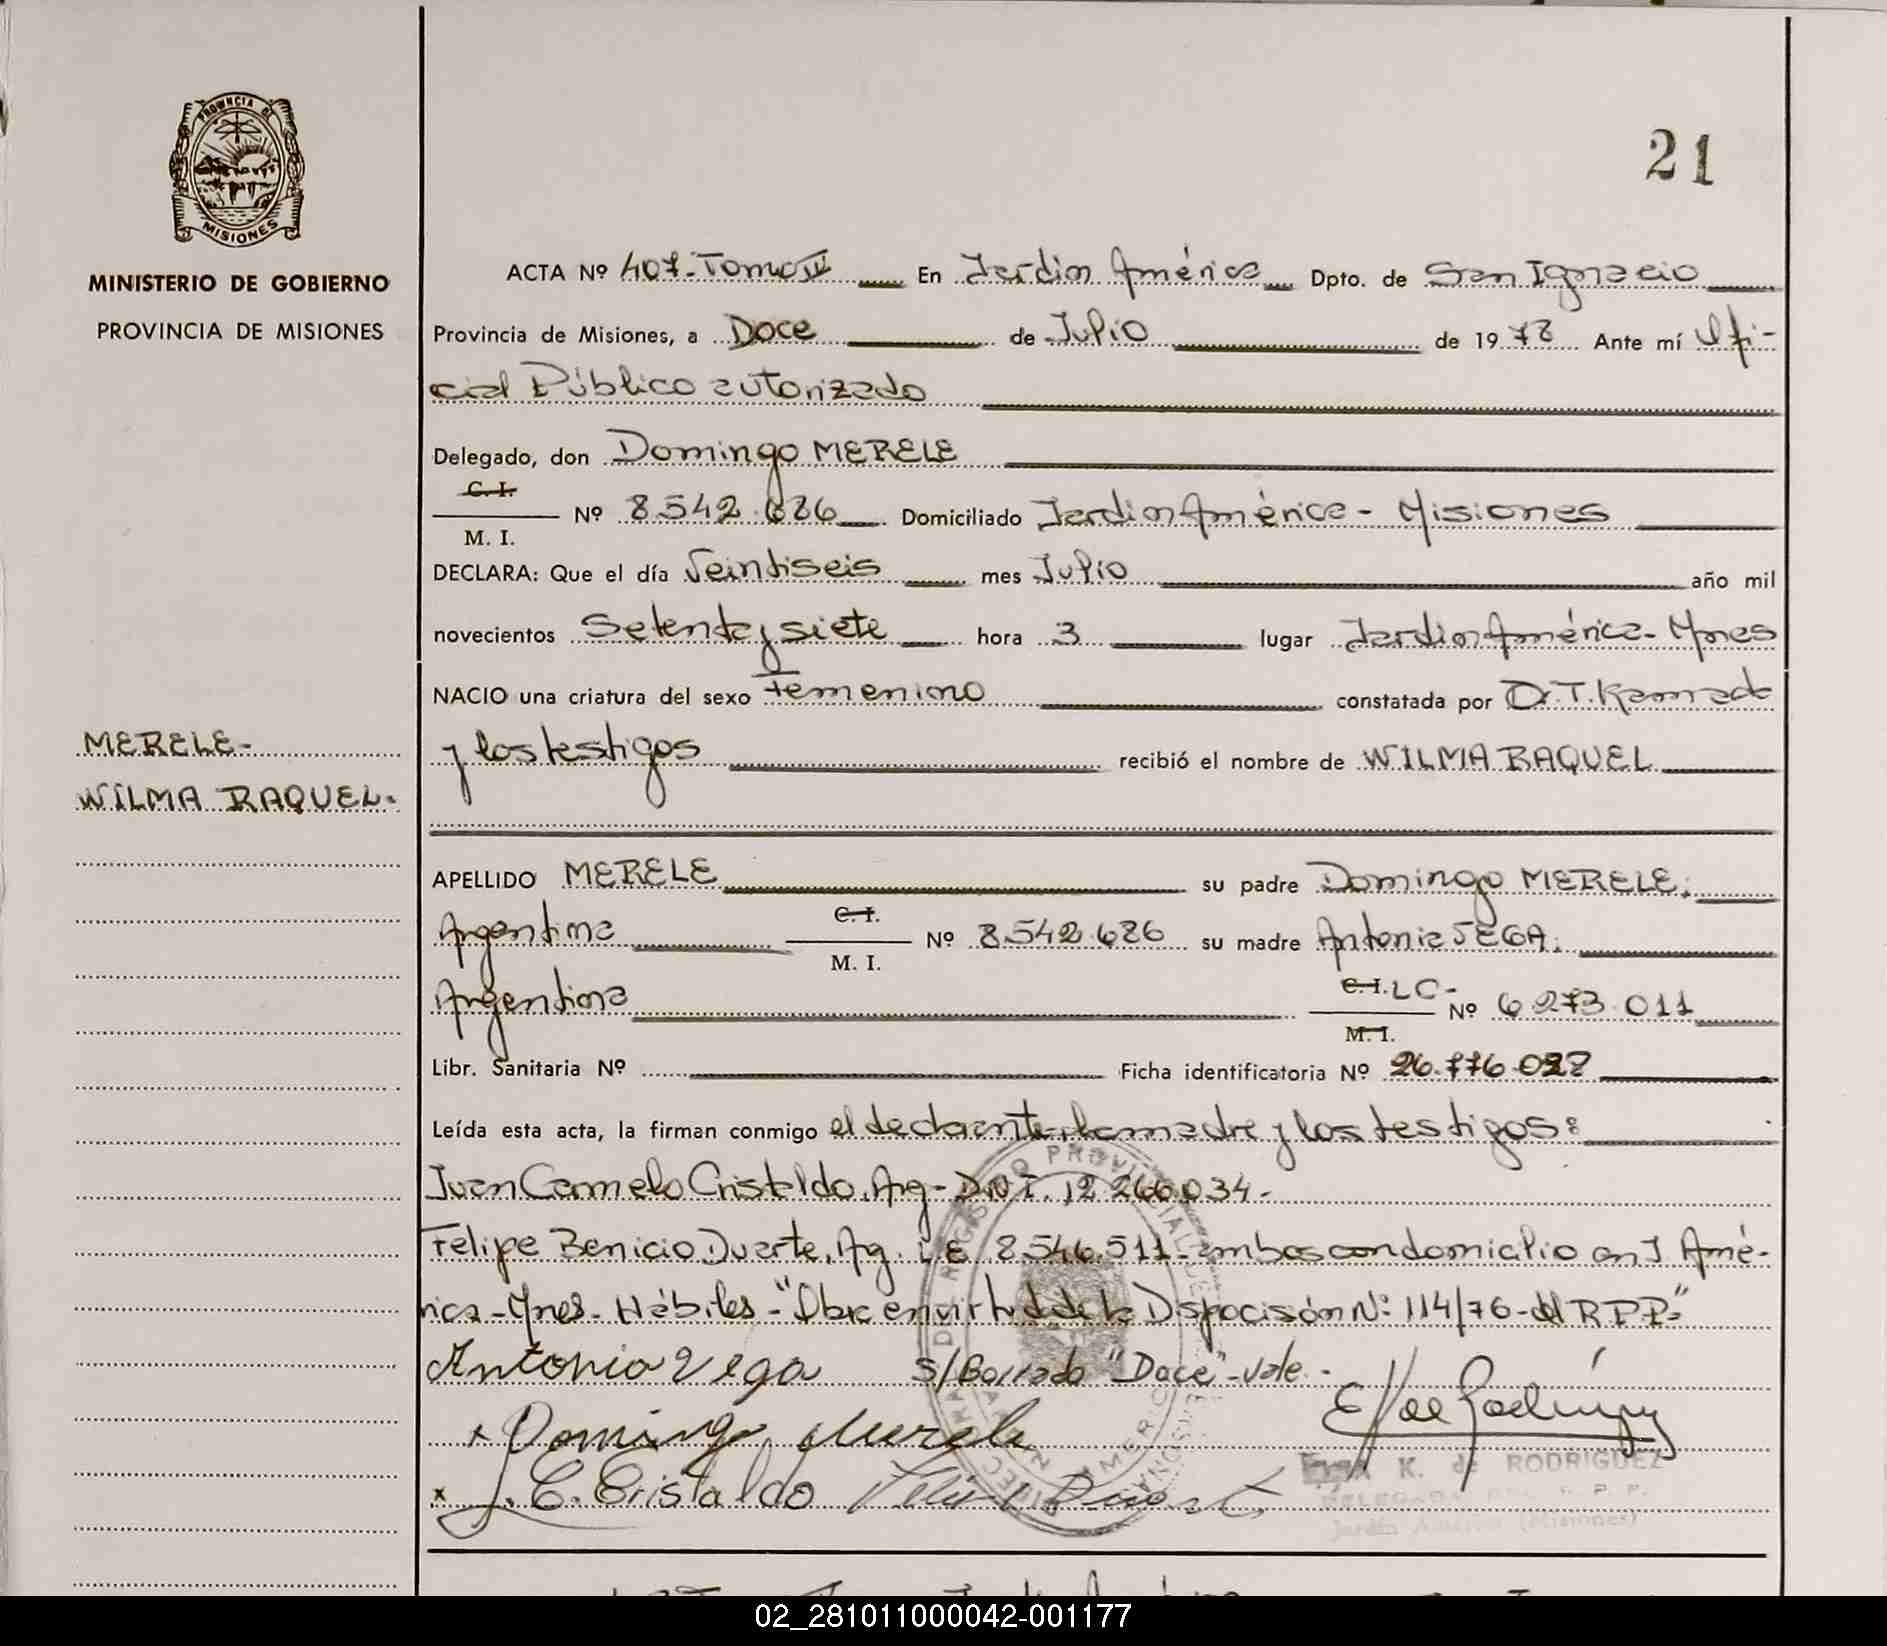 PROVINCIA DE
MISIONES
MINISTERIO DE GOBIERNO
PROVINCIA DE MISIONES
21
ACTA Nº 407-Tomo IV En Jardín América Dpto. de San Ignacio
Provincia de Misiones, a Doce de Julio de 1978 Ante mí Ofi-
cial Público autorizado
Delegado, don Domingo MERELE
C. I.
Nº 8.542.686 Domiciliado Jardín América - Misiones
M. I.
DECLARA: Que el día Veintiseis mes Julio año mil
novecientos Setenta y siete hora 3 lugar Jardín América-Mnes
NACIO una criatura del sexo Femenino constatada por Dr. T. Kamada
MERELE-
y los testigos recibió el nombre de WILMA RAQUEL
WILMA RAQUEL-
APELLIDO MERELE su padre Domingo MERELE;
C. I.
Argentina Nº 8.542.686 su madre Antonia VEGA;
M. I.
C. I. LC-
Argentina Nº 6.273.011
M. I.
Libr. Sanitaria Nº Ficha identificatoria Nº 26.776.027
Leída esta acta, la firman conmigo el declarante, la madre y los testigos:
Juan Carmelo Cristaldo, Arg- D.N.I. 12.266.034-
Felipe Benicio Duarte, Arg. L.E. 8.546.511-ambos con domicilio en J. Amé-
rica-Mnes- Hábiles-"Obra en virtud de la Disposición Nº 114/76-del R.P.P."
Antonia Vega S/Borrado "Doce"-vale.-
x Domingo Merele
x J. C. Cristaldo
K. de RODRIGUEZ
DELEGADA DEL R. P. P.
Jardín América (Misiones)
02_281011000042-001177